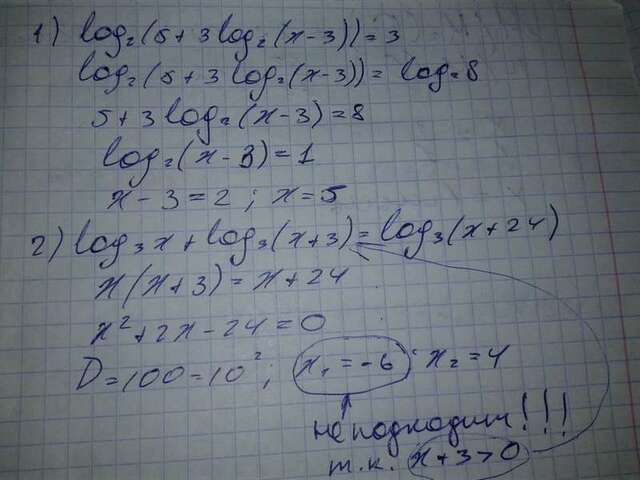 1) log₂(5+3log₂(x-3))=3
log₂(5+3log₂(x-3))=log₂8
5+3log₂(x-3)=8
log₂(x-3)=1
x-3=2; x=5
2) log₃x+log₃(x+3)=log₃(x+24)
x(x+3)=x+24
x²+2x-24=0
D=100=10²; x₁=-6; x₂=4
не подходит!!!
т.к. x+3>0